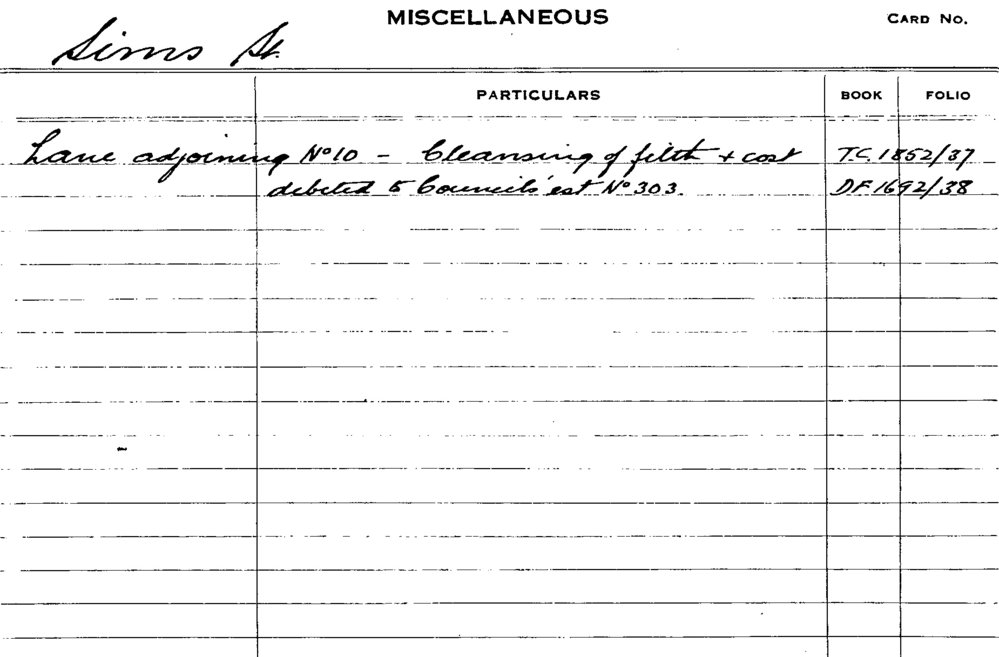 MISCELLANEOUS CARD No.
Sims St.
PARTICULARS BOOK FOLIO
Lane adjoining No 10 - Cleansing of filth + cost T.C. 1852/37
debited to Council's est No 303. DF 1692/38